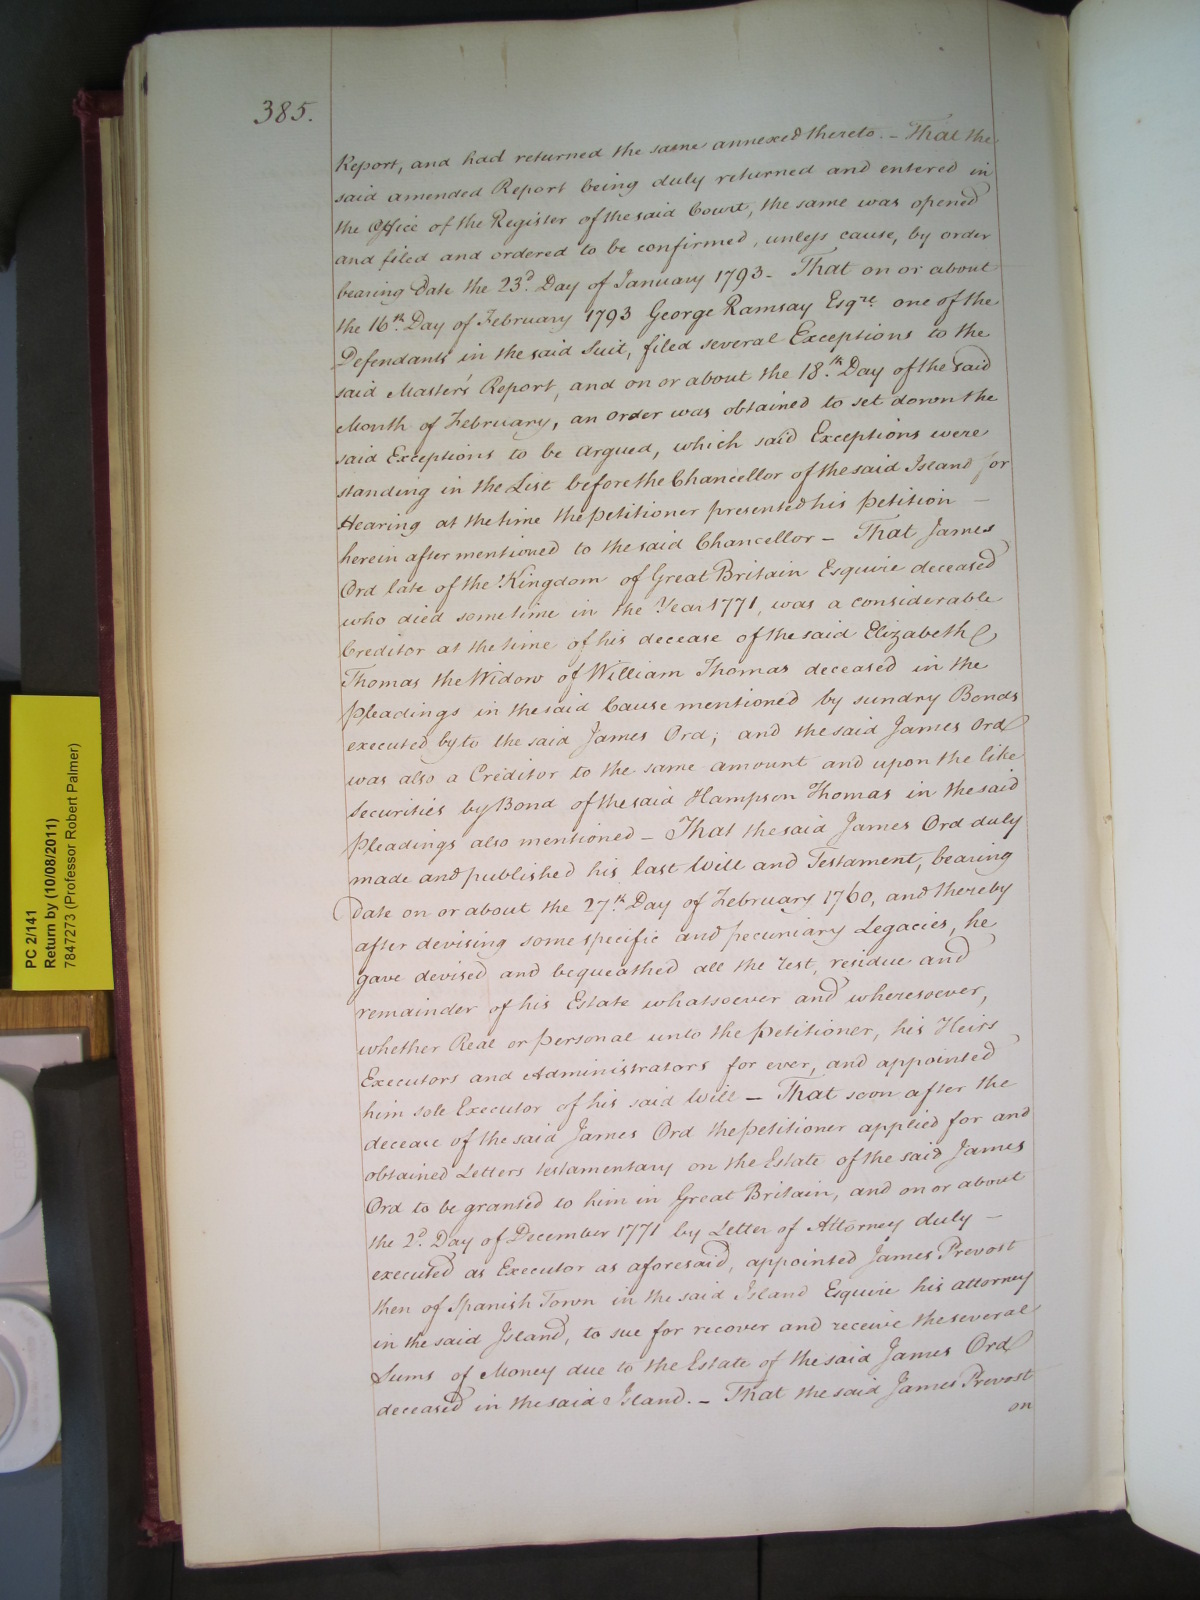 385.
Report, and had returned the same annexed thereto. - That the
said amended Report being duly returned and entered in
the Office of the Register of the said Court, the same was opened
and filed and ordered to be confirmed, unless cause, by order
bearing Date the 23d. Day of January 1793 - That on or about
the 16th. Day of February 1793 George Ramsay Esqre. one of the
Defendants in the said Suit, filed several Exceptions to the
said Master's Report, and on or about the 18th. Day of the said
Month of February, an order was obtained to set down the
said Exceptions to be argued, which said Exceptions were
standing in the List before the Chancellor of the said Island for
Hearing at the time the petitioner presented his petition -
herein after mentioned to the said Chancellor - That James
Ord late of the Kingdom of Great Britain Esquire deceased
who died sometime in the Year 1771, was a considerable
Creditor at the time of his decease of the said Elizabeth
Thomas the Widow of William Thomas deceased in the
pleadings in the said Cause mentioned by sundry Bonds
executed by to the said James Ord; and the said James Ord
was also a Creditor to the same amount and upon the like
Securities by Bond of the said Hampson Thomas in the said
pleadings also mentioned - That the said James Ord duly
made and published his last Will and Testament, bearing
Date on or about the 27th. Day of February 1760, and thereby
after devising some specific and pecuniary Legacies, he
gave devised and bequeathed all the rest, residue and
remainder of his Estate whatsoever and wheresoever,
whether Real or personal unto the petitioner, his Heirs
Executors and Administrators for ever, and appointed
him sole Executor of his said Will - That soon after the
decease of the said James Ord the petitioner applied for and
obtained Letters testamentary on the Estate of the said James
Ord to be granted to him in Great Britain, and on or about
the 2d. Day of December 1771 by Letter of Attorney duly -
executed as Executor as aforesaid, appointed James Prevost
then of Spanish Town in the said Island Esquire his attorney
in the said Island, to sue for recover and receive the several
Sums of Money due to the Estate of the said James Ord
deceased in the said Island. - That the said James Prevost
on
PC 2/141
Return by (10/08/2011)
7847273 (Professor Robert Palmer)